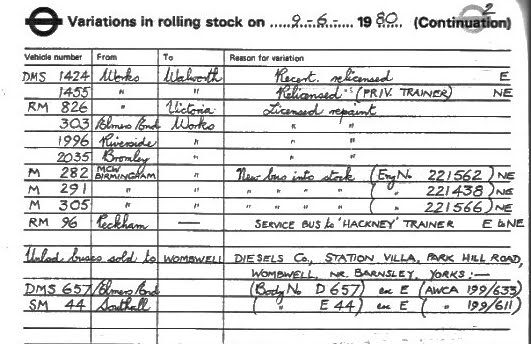 2
Variations in rolling stock on 9-6- 1980. (Continuation)
Vehicle number From To Reason for variation
DMS 1424 Works Walworth Recert. relicensed E
1455 " " Relicensed (PRIV. TRAINER) NE
RM 826 " Victoria Licensed repaint
303 Elmers End Works " "
1996 Riverside " " "
2035 Bromley " " "
M 282 MCW BIRMINGHAM " New bus into stock (Eng No 221562) NE
M 291 " " " " " " ( " 221438) NE
M 305 " " " " " " ( " 221566) NE
RM 96 Peckham — SERVICE BUS to 'HACKNEY' TRAINER E to NE
Unlcd buses sold to WOMBWELL DIESELS Co., STATION VILLA, PARK HILL ROAD,
WOMBWELL, NR. BARNSLEY, YORKS:—
DMS 657 Elmers End (Body No D 657) ex E (AWCA 199/633)
SM 44 Southall ( " E 44) ex E ( " 199/611)